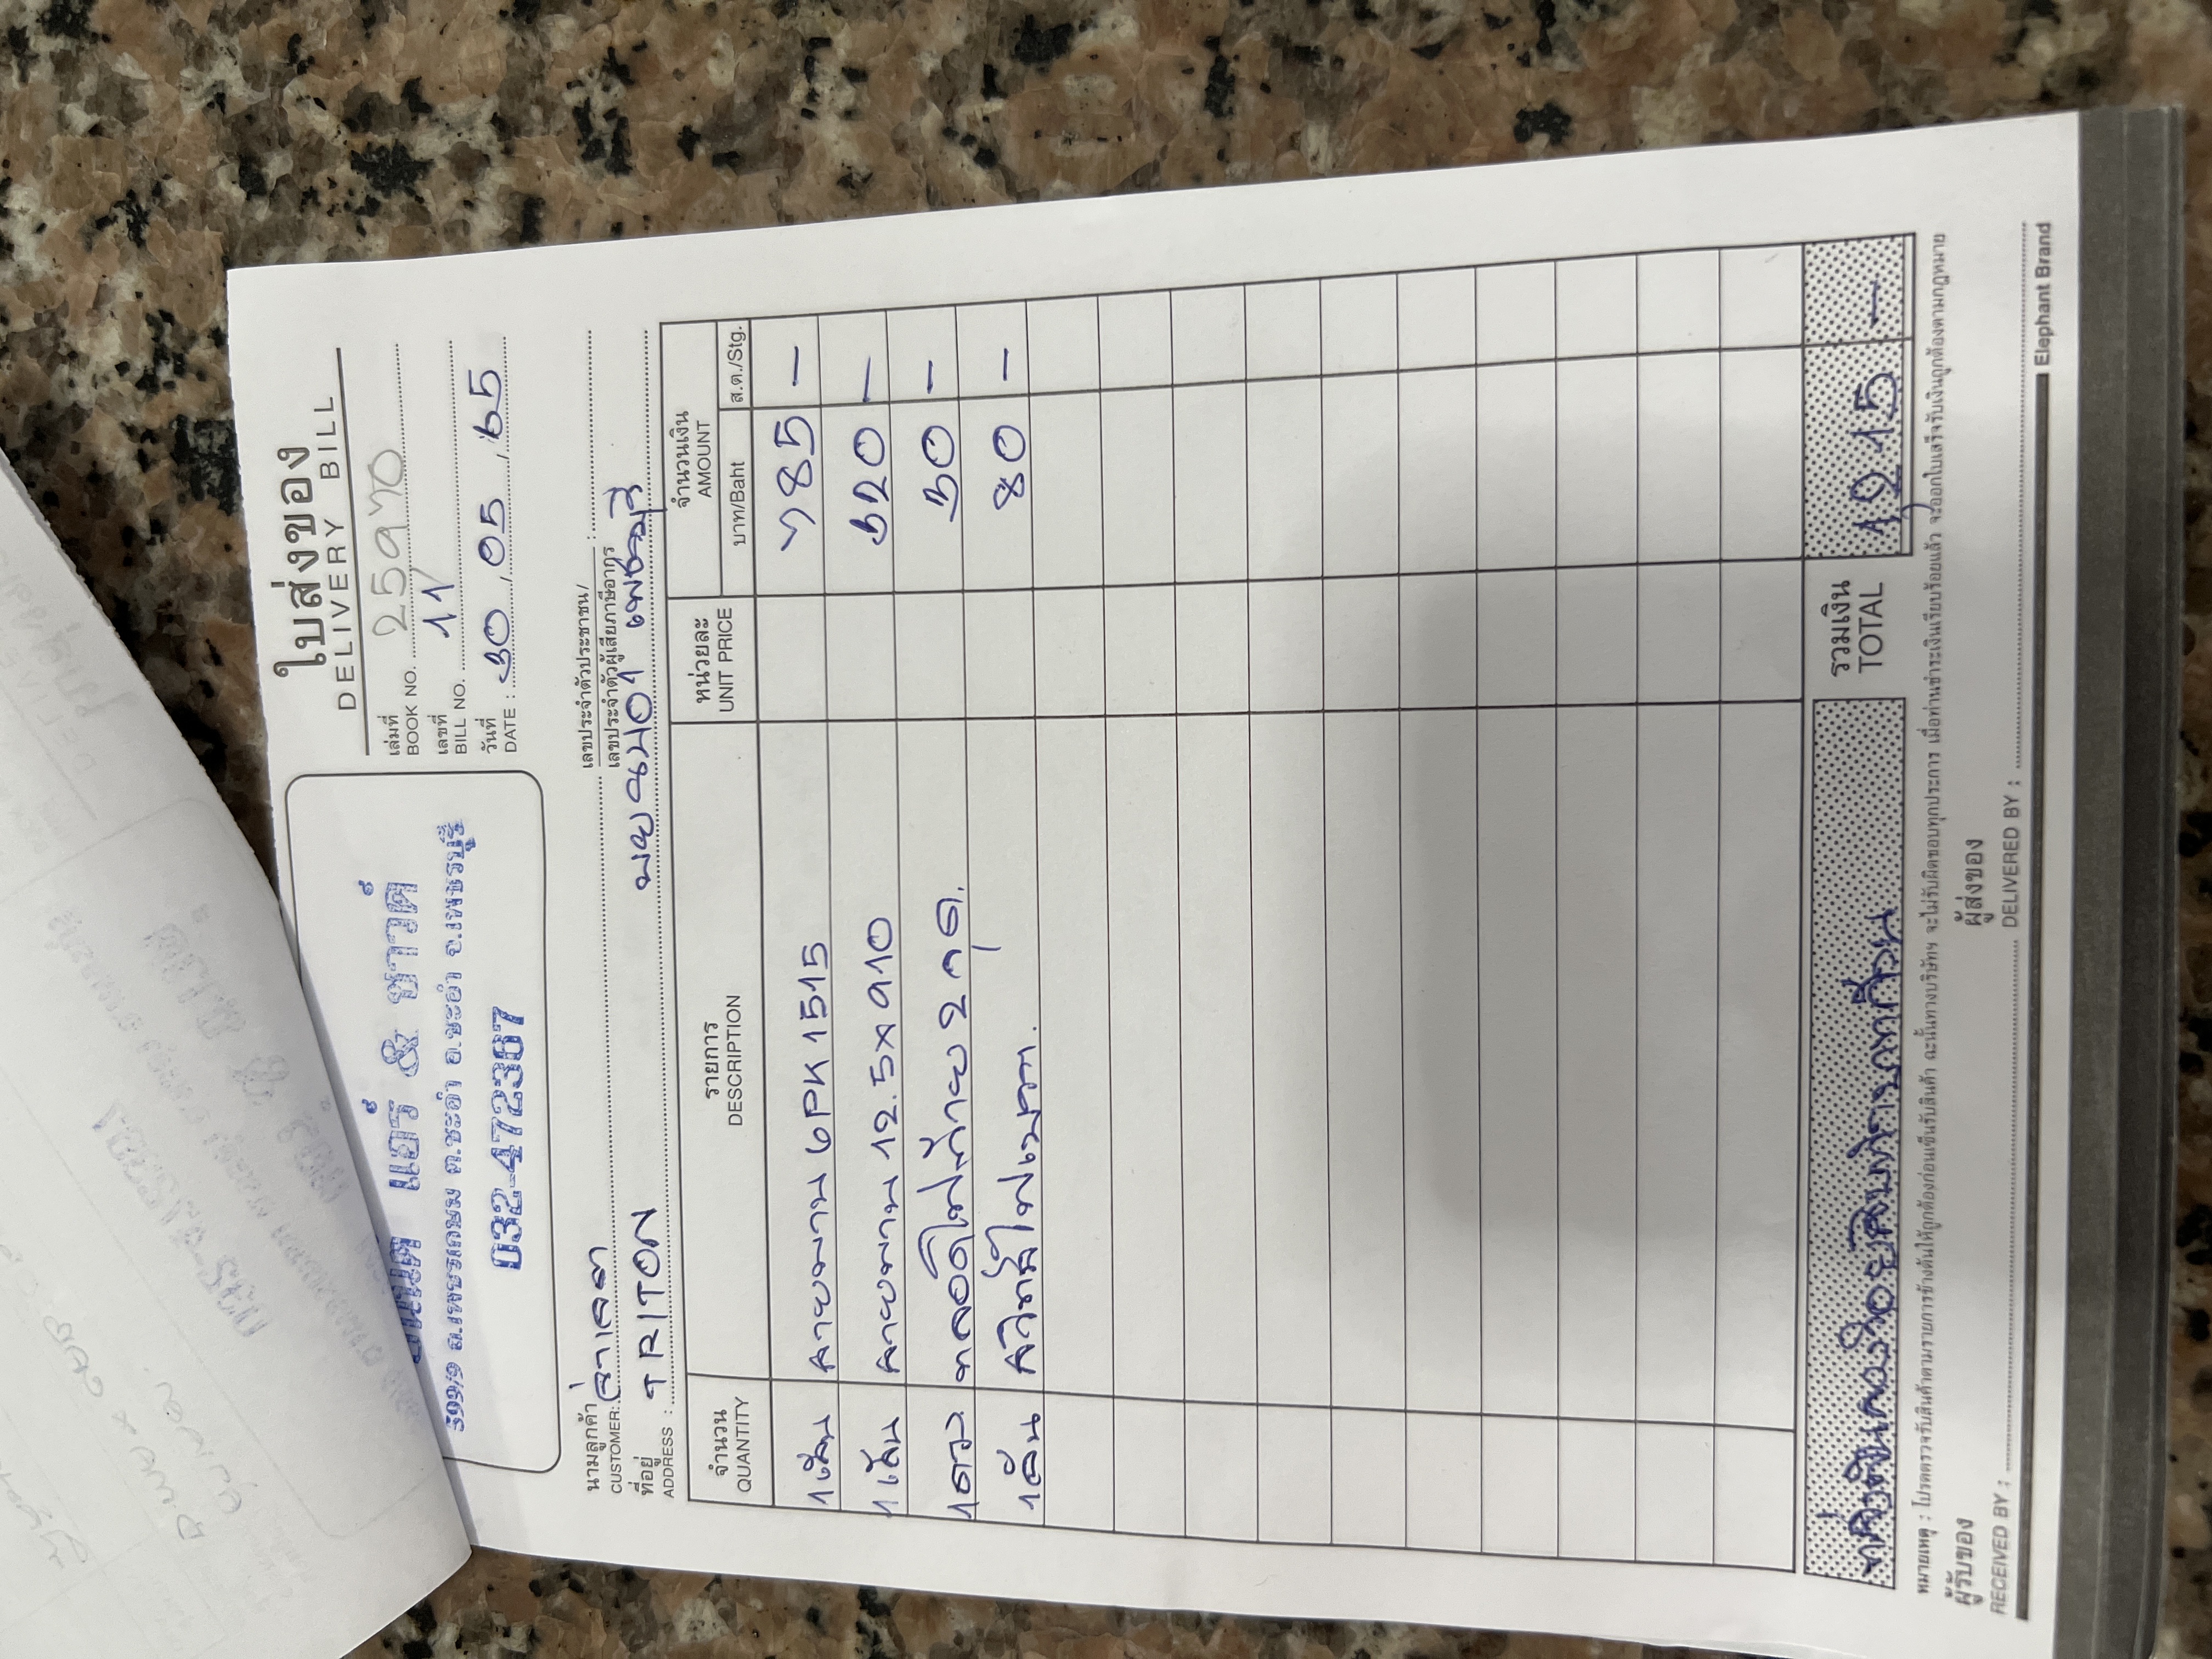 ใบส่งของ
DELIVERY BILL
เล่มที่
BOOK NO. 25970
เลขที่
BILL NO. 11
วันที่
DATE : 30 , 05 , 65
แอร์ & ซาวด์
599/9 ถ.เพชรเกษม ต.ชะอำ อ.ชะอำ จ.เพชรบุรี
032-472387
นามลูกค้า
CUSTOMER:
เลขประจำตัวประชาชน/
เลขประจำตัวผู้เสียภาษีอากร :
ที่อยู่
ADDRESS : TRITON
จำนวน รายการ หน่วยละ จำนวนเงิน
QUANTITY DESCRIPTION UNIT PRICE AMOUNT
บาท/Baht ส.ต./Stg.
1 เส้น สายพาน 6PK 1515 785 -
1 เส้น สายพาน 12.5x910 320 -
1 ดวง หลอดไฟท้าย 2 จุด. 30 -
1 อัน สวิทช์ไฟเบรก. 80 -
หนึ่งพันสองร้อยสิบห้าบาทถ้วน รวมเงิน 1,215 -
TOTAL
หมายเหตุ : โปรดตรวจรับสินค้าตามรายการข้างต้นให้ถูกต้องก่อนเซ็นรับสินค้า ฉะนั้นทางบริษัทฯ จะไม่รับผิดชอบทุกประการ เมื่อท่านชำระเงินเรียบร้อยแล้ว จะออกใบเสร็จรับเงินถูกต้องตามกฎหมาย
ผู้รับของ
RECEIVED BY :
ผู้ส่งของ
DELIVERED BY :
Elephant Brand